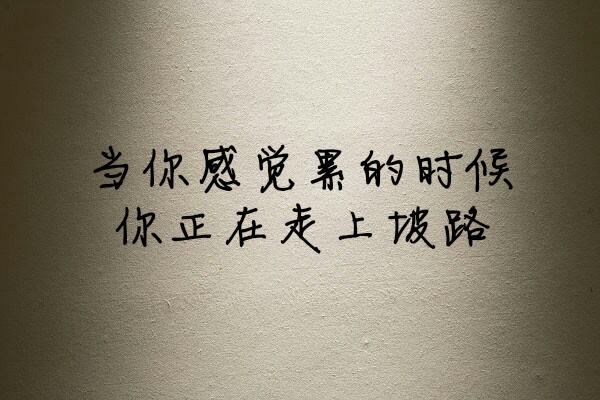 当你感觉累的时候
你正在走上坡路